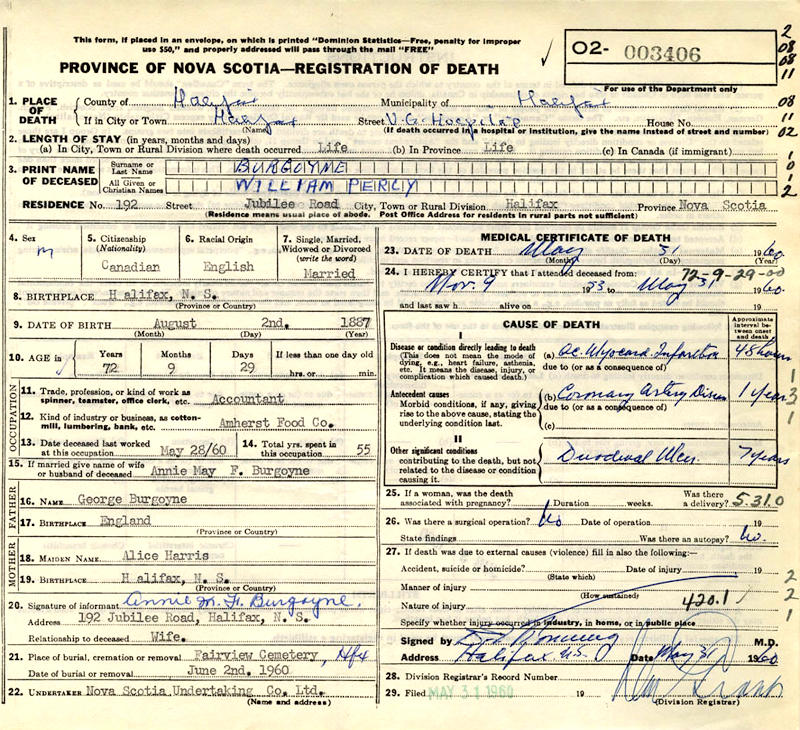 This form, if placed in an envelope, on which is printed "Dominion Statistics—Free, penalty for improper
use $50," and properly addressed will pass through the mail "FREE"
PROVINCE OF NOVA SCOTIA—REGISTRATION OF DEATH
O2- 003406
For use of the Department only
2
08
08
11
08
11
02
1. PLACE OF DEATH
County of Halifax Municipality of Halifax
If in City or Town Halifax Street V.G. Hospital House No.
(Name) (If death occurred in a hospital or institution, give the name instead of street and number)
2. LENGTH OF STAY (in years, months and days)
(a) In City, Town or Rural Division where death occurred Life (b) In Province Life (c) In Canada (if immigrant)
3. PRINT NAME OF DECEASED
Surname or Last Name BURGOYNE
All Given or Christian Names WILLIAM PERCY
RESIDENCE No. 192 Street Jubilee Road City, Town or Rural Division Halifax Province Nova Scotia
(Residence means usual place of abode. Post Office Address for residents in rural parts not sufficient)
4. Sex
m
5. Citizenship
(Nationality)
Canadian
6. Racial Origin
English
7. Single, Married, Widowed or Divorced
(write the word)
Married
8. BIRTHPLACE Halifax, N. S.
(Province or Country)
9. DATE OF BIRTH August 2nd. 1887
(Month) (Day) (Year)
10. AGE in
Years Months Days If less than one day old
72 9 29 hrs. or min.
OCCUPATION
11. Trade, profession, or kind of work as
spinner, teamster, office clerk, etc. Accountant
12. Kind of industry or business, as cotton-
mill, lumbering, bank, etc. Amherst Food Co.
13. Date deceased last worked
at this occupation May 28/60
14. Total yrs. spent in
this occupation 55
15. If married give name of wife
or husband of deceased Annie May F. Burgoyne
FATHER
16. NAME George Burgoyne
17. BIRTHPLACE England
(Province or Country)
MOTHER
18. MAIDEN NAME Alice Harris
19. BIRTHPLACE Halifax, N. S.
(Province or Country)
20. Signature of informant Annie M. F. Burgoyne.
Address 192 Jubilee Road, Halifax, N. S.
Relationship to deceased Wife.
21. Place of burial, cremation or removal Fairview Cemetery, Hfx
Date of burial or removal June 2nd. 1960
22. UNDERTAKER Nova Scotia Undertaking Co. Ltd.
(Name and address)
MEDICAL CERTIFICATE OF DEATH
23. DATE OF DEATH May 31 1960
(Month) (Day) (Year)
24. I HEREBY CERTIFY that I attended deceased from: 72-9-29-00
Nov. 9 1953 to May 31, 1960
and last saw h alive on 19
CAUSE OF DEATH
Approximate interval between onset and death
I
Disease or condition directly leading to death
(This does not mean the mode of
dying, e.g., heart failure, asthenia,
etc. It means the disease, injury, or
complication which caused death.)
(a) Ac. Myocard Infarction 48 hours
due to (or as a consequence of)
Antecedent causes
Morbid conditions, if any, giving
rise to the above cause, stating the
underlying condition last.
(b) Coronary Artery Disease 1 year
due to (or as a consequence of)
(c)
II
Other significant conditions
contributing to the death, but not
related to the disease or condition
causing it.
Duodenal Ulcer. 7 years
25. If a woman, was the death
associated with pregnancy? Duration weeks. Was there a delivery? 5310
26. Was there a surgical operation? No Date of operation 19
State findings Was there an autopsy? No.
27. If death was due to external causes (violence) fill in also the following:—
Accident, suicide or homicide? Date of injury 19
(State which)
Manner of injury
(How sustained)
Nature of injury 420.1
Specify whether injury occurred in industry, in home, or in public place
Signed by M.D.
Address Halifax N.S. Date May 31 1960
28. Division Registrar's Record Number
29. Filed MAY 31 1960 19
(Division Registrar)